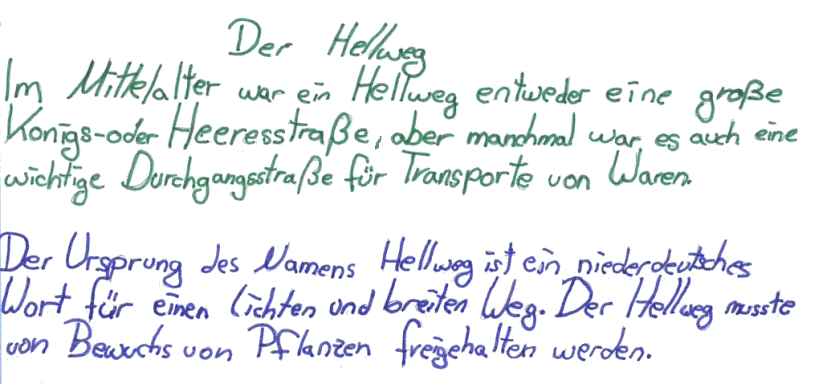 Der Hellweg
Im Mittelalter war ein Hellweg entweder eine große
Königs-oder Heeresstraße, aber manchmal war es auch eine
wichtige Durchgangsstraße für Transporte von Waren.
Der Ursprung des Namens Hellweg ist ein niederdeutsches
Wort für einen lichten und breiten Weg. Der Hellweg musste
von Bewuchs von Pflanzen freigehalten werden.